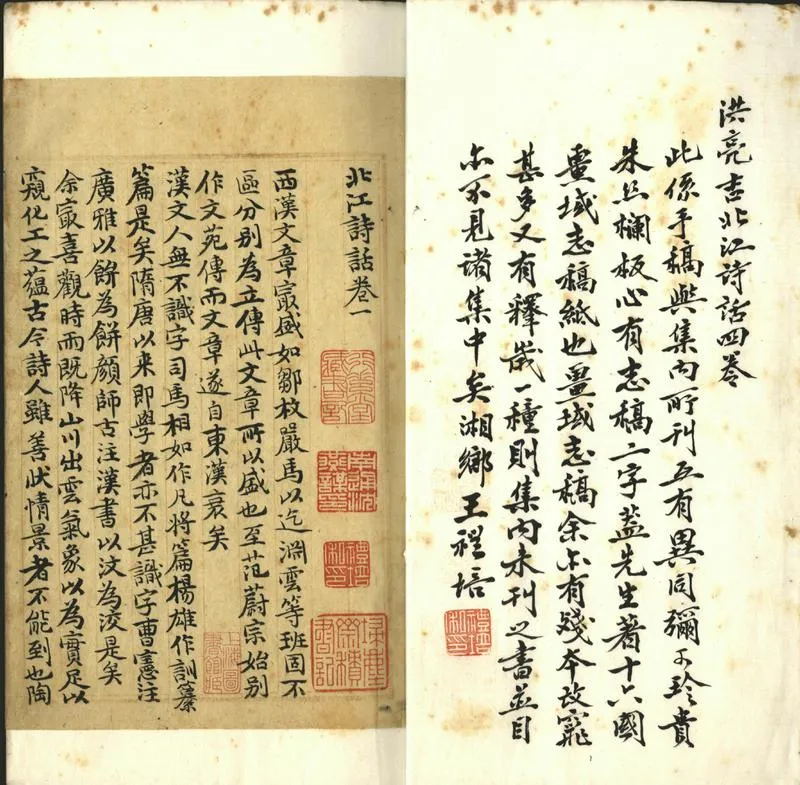 洪亮吉北江詩話四卷
此係手稿與集內所刊互有異同彌可珍貴
朱絲欄板心有志稿二字蓋先生著十六國
畺域志稿紙也畺域志稿余亦有殘本改竄
甚多又有釋歲一種則集內未刊之書並目
亦不見諸集中矣湘鄉王禮培
禮培私印
北江詩話卷一
西漢文章冣盛如鄒枚嚴馬以迄淵雲等班固不
區分別為立傳此文章所以盛也至范蔚宗始別
作文苑傳而文章遂自東漢衰矣
漢文人無不識字司馬相如作凡將篇楊雄作訓纂
篇是矣隋唐以來即學者亦不甚識字曹憲注
廣雅以餅為餅顏師古注漢書以汶為洨是矣
余冣喜觀時雨既降山川出雲氣象以為實足以
窺化工之蘊古今詩人雖善狀情景者不能到也陶
南通沈燕謀印
禮培私印
掃塵齋積書記
上海圖書館藏